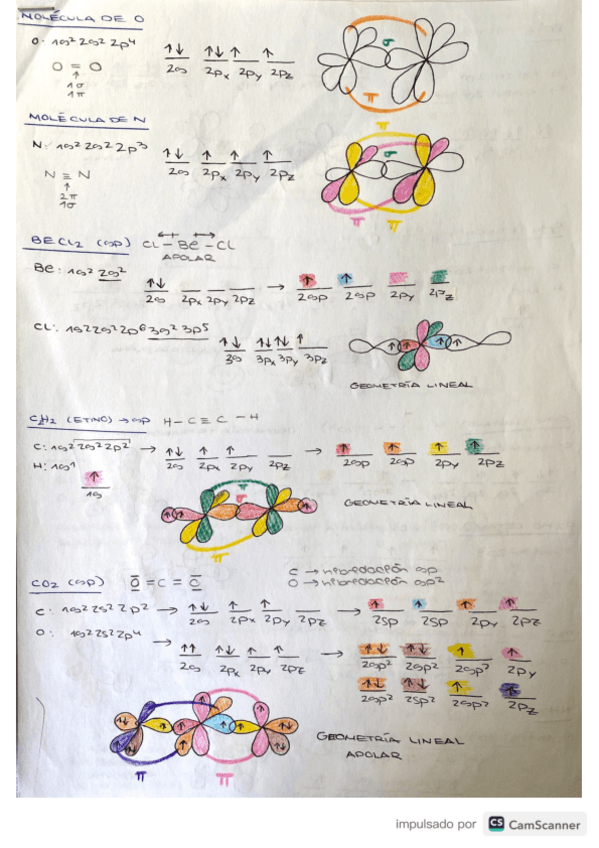 MOLÉCULA DE O
O: 1s² 2s² 2p⁴
↑↓ ↑↓ ↑ ↑
2s 2px 2py 2pz
O = O
↑
1σ
1π
σ
π
MOLÉCULA DE N
N: 1s² 2s² 2p³
↑↓ ↑ ↑ ↑
2s 2px 2py 2pz
N ≡ N
↑
2π
1σ
σ
π π
BECL2 (sp) CL – Be – CL
APOLAR
Be: 1s² 2s²
↑↓ → ↑ ↑
2s 2px 2py 2pz 2sp 2sp 2py 2pz
CL: 1s² 2s² 2p⁶ 3s² 3p⁵
↑↓ ↑↓ ↑↓ ↑
3s 3px 3py 3pz
↑ ↑ ↑ ↑
GEOMETRÍA LINEAL
C2H2 (ETINO) → sp H – C ≡ C – H
C: 1s² 2s² 2p² → ↑↓ ↑ ↑ → ↑ ↑ ↑ ↑
2s 2px 2py 2pz 2sp 2sp 2py 2pz
H: 1s¹
↑
1s
π
σ
π
GEOMETRÍA LINEAL
CO2 (sp) O = C = O
C → hibridación sp
O → hibridación sp²
C: 1s² 2s² 2p² → ↑↓ ↑ ↑ → ↑ ↑ ↑ ↑
2s 2px 2py 2pz 2sp 2sp 2py 2pz
O: 1s² 2s² 2p⁴ → ↑↑ ↑↓ ↑ ↑ → ↑↓ ↑↓ ↑ ↑
2s 2px 2py 2pz 2sp² 2sp² 2sp² 2py
↑↓ ↑↓ ↑ ↑
2sp² 2sp² 2sp² 2pz
π π
GEOMETRÍA LINEAL
APOLAR
impulsado por CS CamScanner